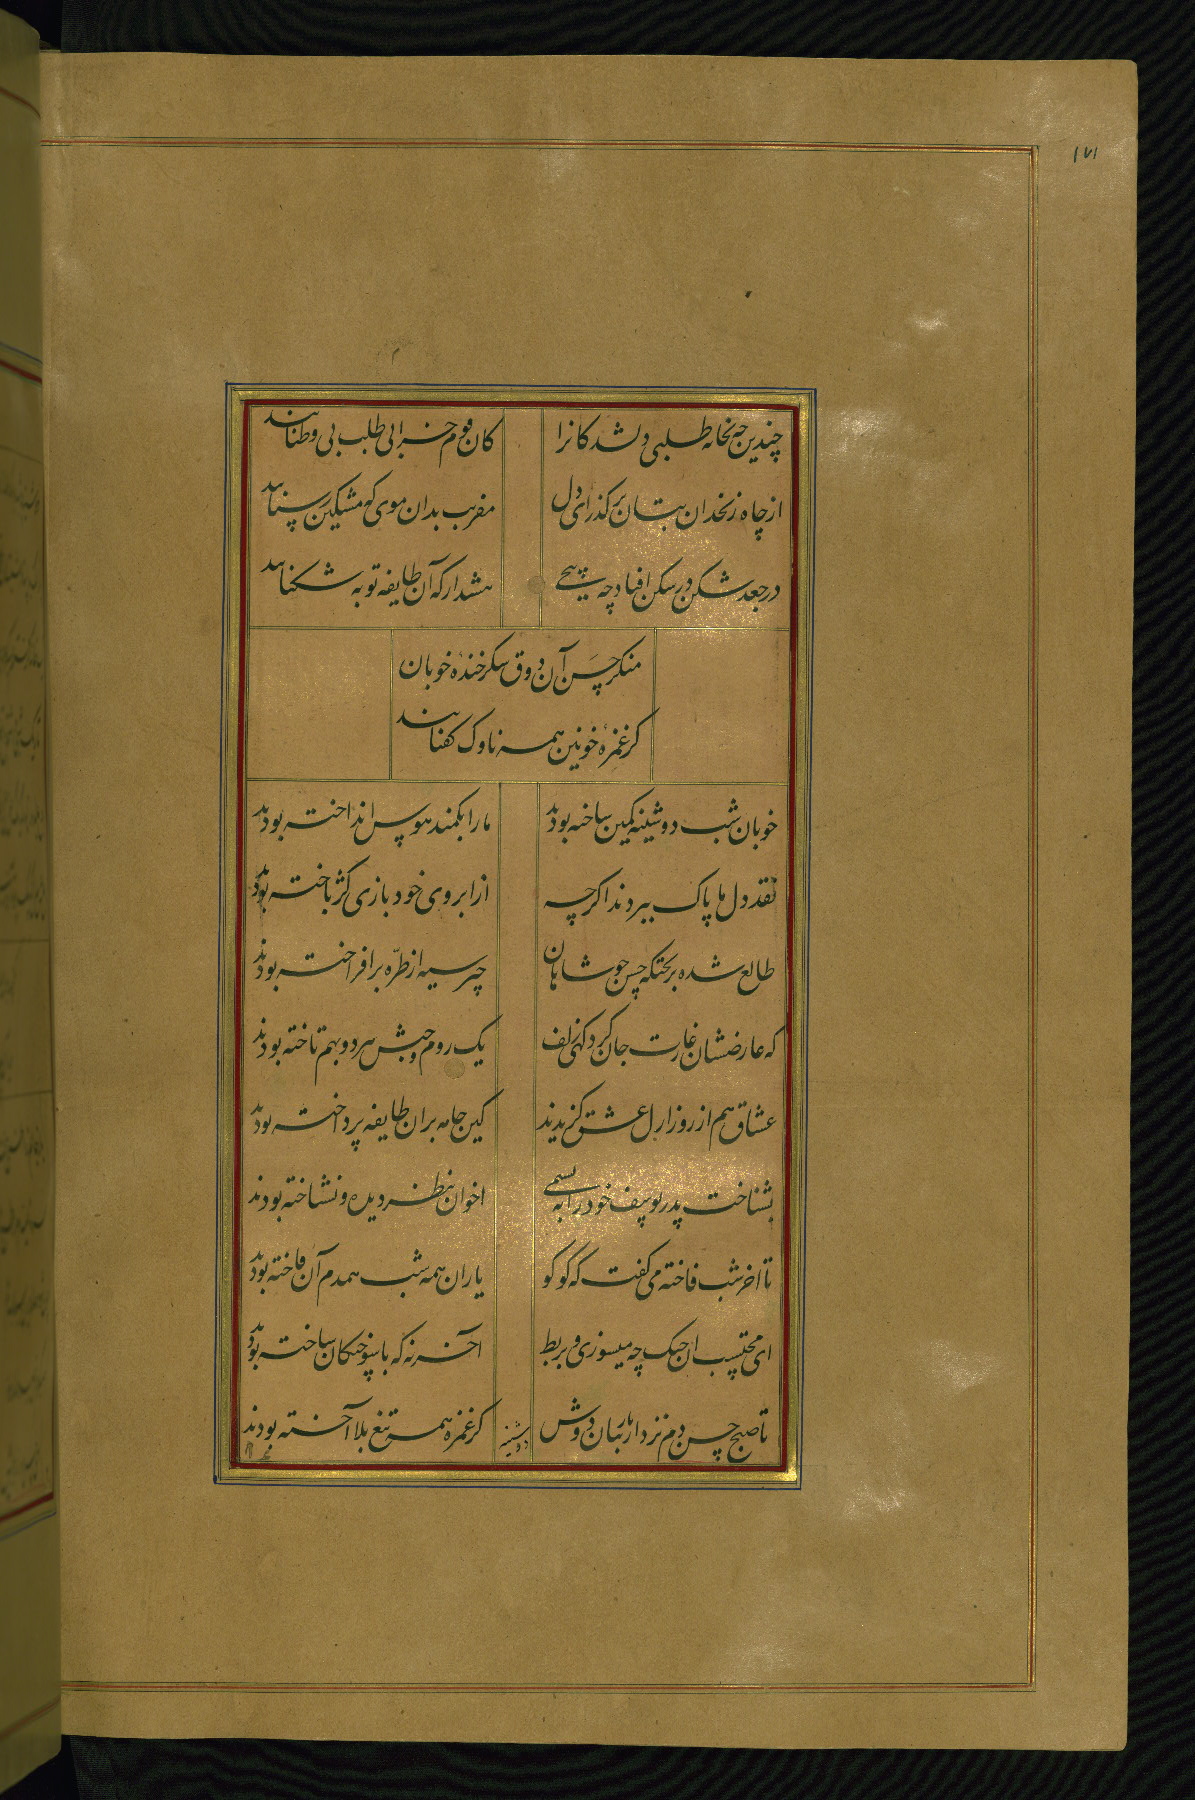 ۱۷۱
چندین چه نخانه طلبی دلشدکانرا کان قوم خرابی طلب بی وطنانند
از چاه زنخدان بتان برکذر ای دل مفریب بدان موی که مشکین رسنانند
در جعد شکن در شکن افتاد چه پیچی هشدار که آن طایفه توبه شکنانند
منکر حسن آن ذوق شکرخنده خوبان
کز غمزهٔ خونین همه ناوک فکنانند
خوبان شب دوشینه کمین ساخته بودند ما را بکمند هوس انداخته بودند
نقد دل ما پاک ببردند اکرچه از ابروی خود بازی کژ باخته بودند
طالع شده بر تختکه حسن چو شاهان چتر سیه از طرّه برافراخته بودند
که عارضشان غارت جان کرد کهی زلف یک روم و حبش هر دو بهم تاخته بودند
عشاق هم از روز ازل عشق کزیدند کین جامه بران طایفه پرداخته بودند
بشناخت پدر یوسف خود را به نسیمی اخوان بنظر دیده و نشناخته بودند
تا اخر شب فاخته می کفت که کو کو یاران همه شب همدم آن فاخته بودند
ای محتسب ان چنک چه میسوزی و بربط آخر نه که با سوختکان ساخته بودند
تا صبح حسن دم نزد از یار بتان دوش کز غمزه همه تیغ بلا آخته بودند
دوشینه